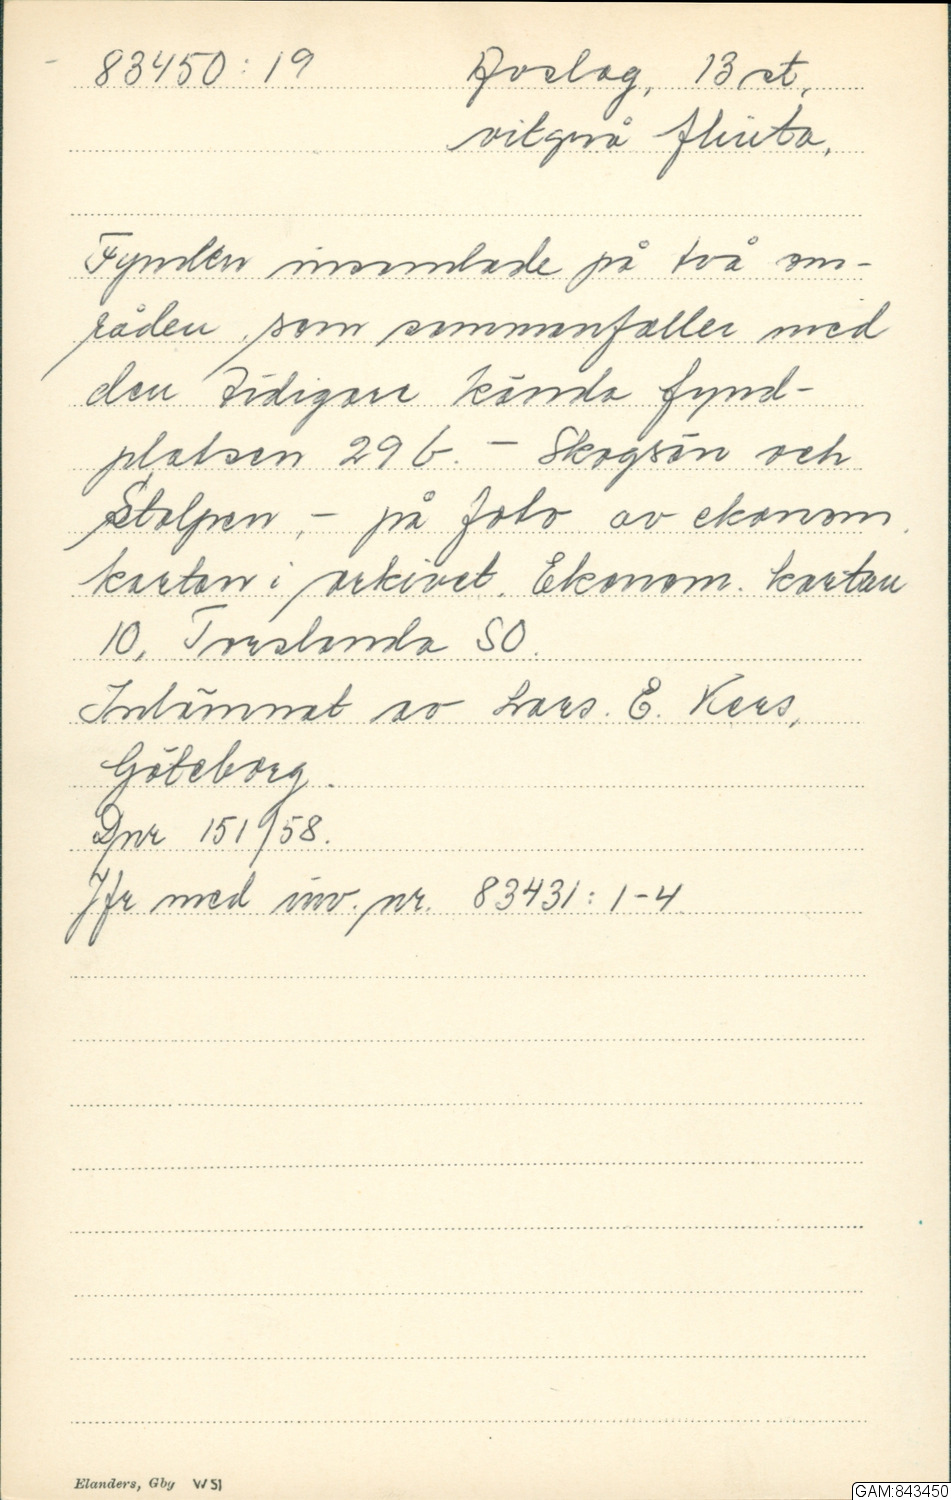 83450:19 Avslag, 13 st,
vitgrå flinta.
Fynden insamlade på två om-
råden, som sammanfaller med
den tidigare kända fynd-
platsen 29 b. – Skogsön och
Stolpen, – på foto av ekonom.
kartan i arkivet. Ekonom. kartan
10, Torslanda SO.
Inlämnat av Lars. E. Kers,
Göteborg.
Dnr 151/58.
Jfr med inv. nr. 83431: 1-4
Elanders, Gby W 51
GAM:843450